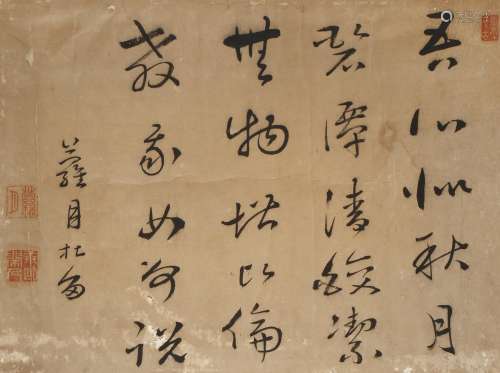 吾心似秋月
碧潭清皎潔
無物堪比倫
教我如何説
蘿月杜多